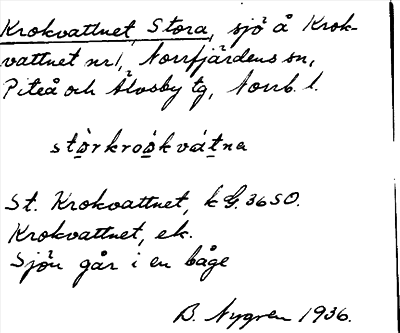 Krokvattnet, Stora, sjö å Krok-
vattnet nr 1, Norrfjärdens sn,
Piteå och Älvsby tg, Norrb. l.
stòrkroókvátna
St. Krokvattnet, k G. 36 SO.
Krokvattnet, ek.
Sjön går i en båge
B. Nygren 1936.